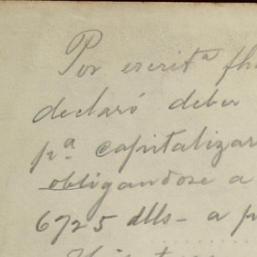 Por escritª fh
declaró deber
pª capitalizar
obligandose a
6725 dlls - a p